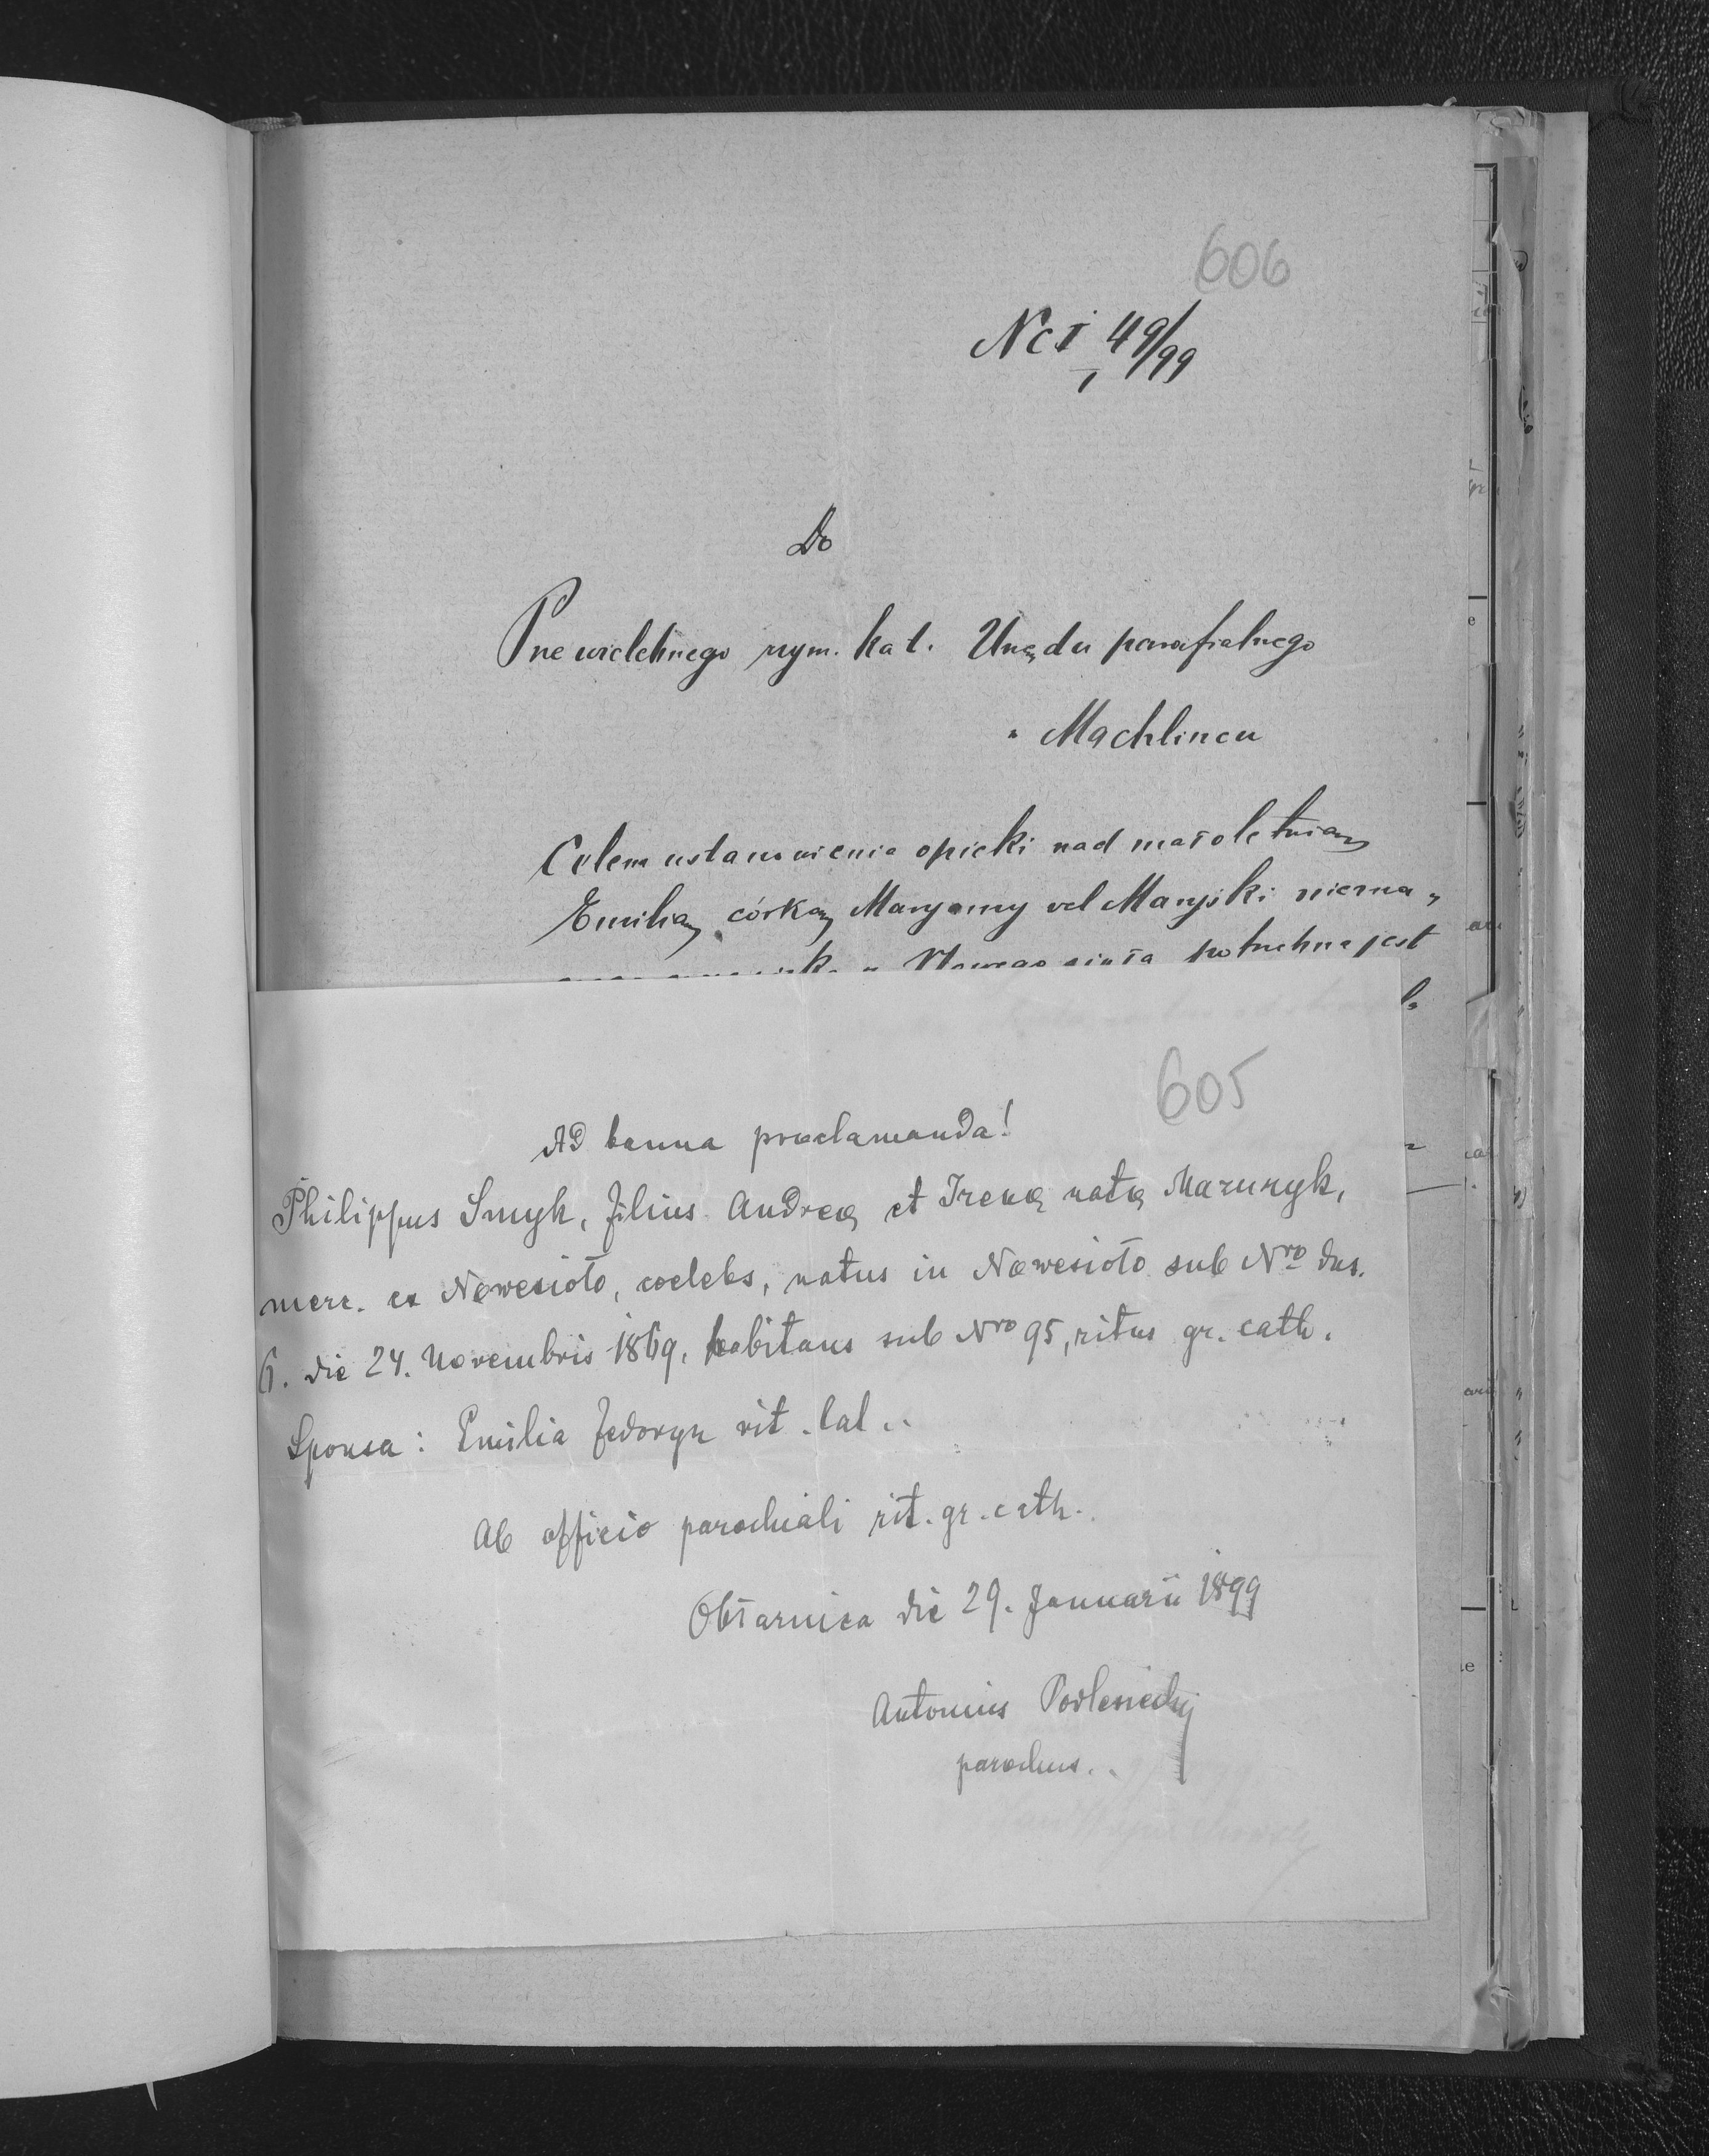 606
Nc I 49/99
1
Do
Przewielebnego rzym. kat. Urzędu parafialnego
w Machlincu
Celem ustanowienia opieki nad małoletnią
Emilią, córką Maryanny vel Maryśki niezna„
Nowego sioła potrzebne jest
605
Ad banna proclamanda!
Philippus Smyk, filius Andreæ et Irenæ natæ Maruryk,
merc. ex Nowesioło, coelebs, natus in Nowesioło sub Nro dus.
6. die 24. Novembris 1869, habitans sub Nro 95, ritus gr. cath.
Sponsa: Emilia Fedoryn rit. lat..
Ab officio parochiali rit. gr. cath.
Obłarnica die 29. Januarii 1899
Antonius Podlesiecky
parochus..